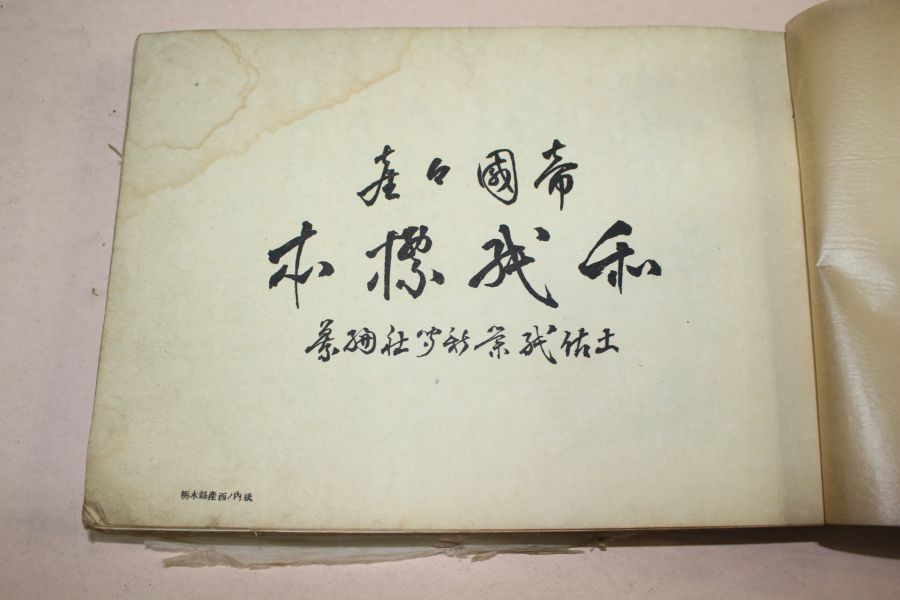 帝國々産
和紙標本
土佐紙業新聞社編纂
栃木縣産西ノ内紙